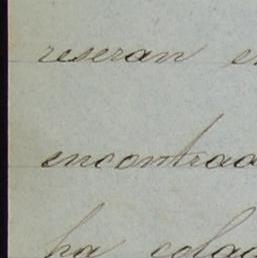 reseran e
encontrad
ha colga